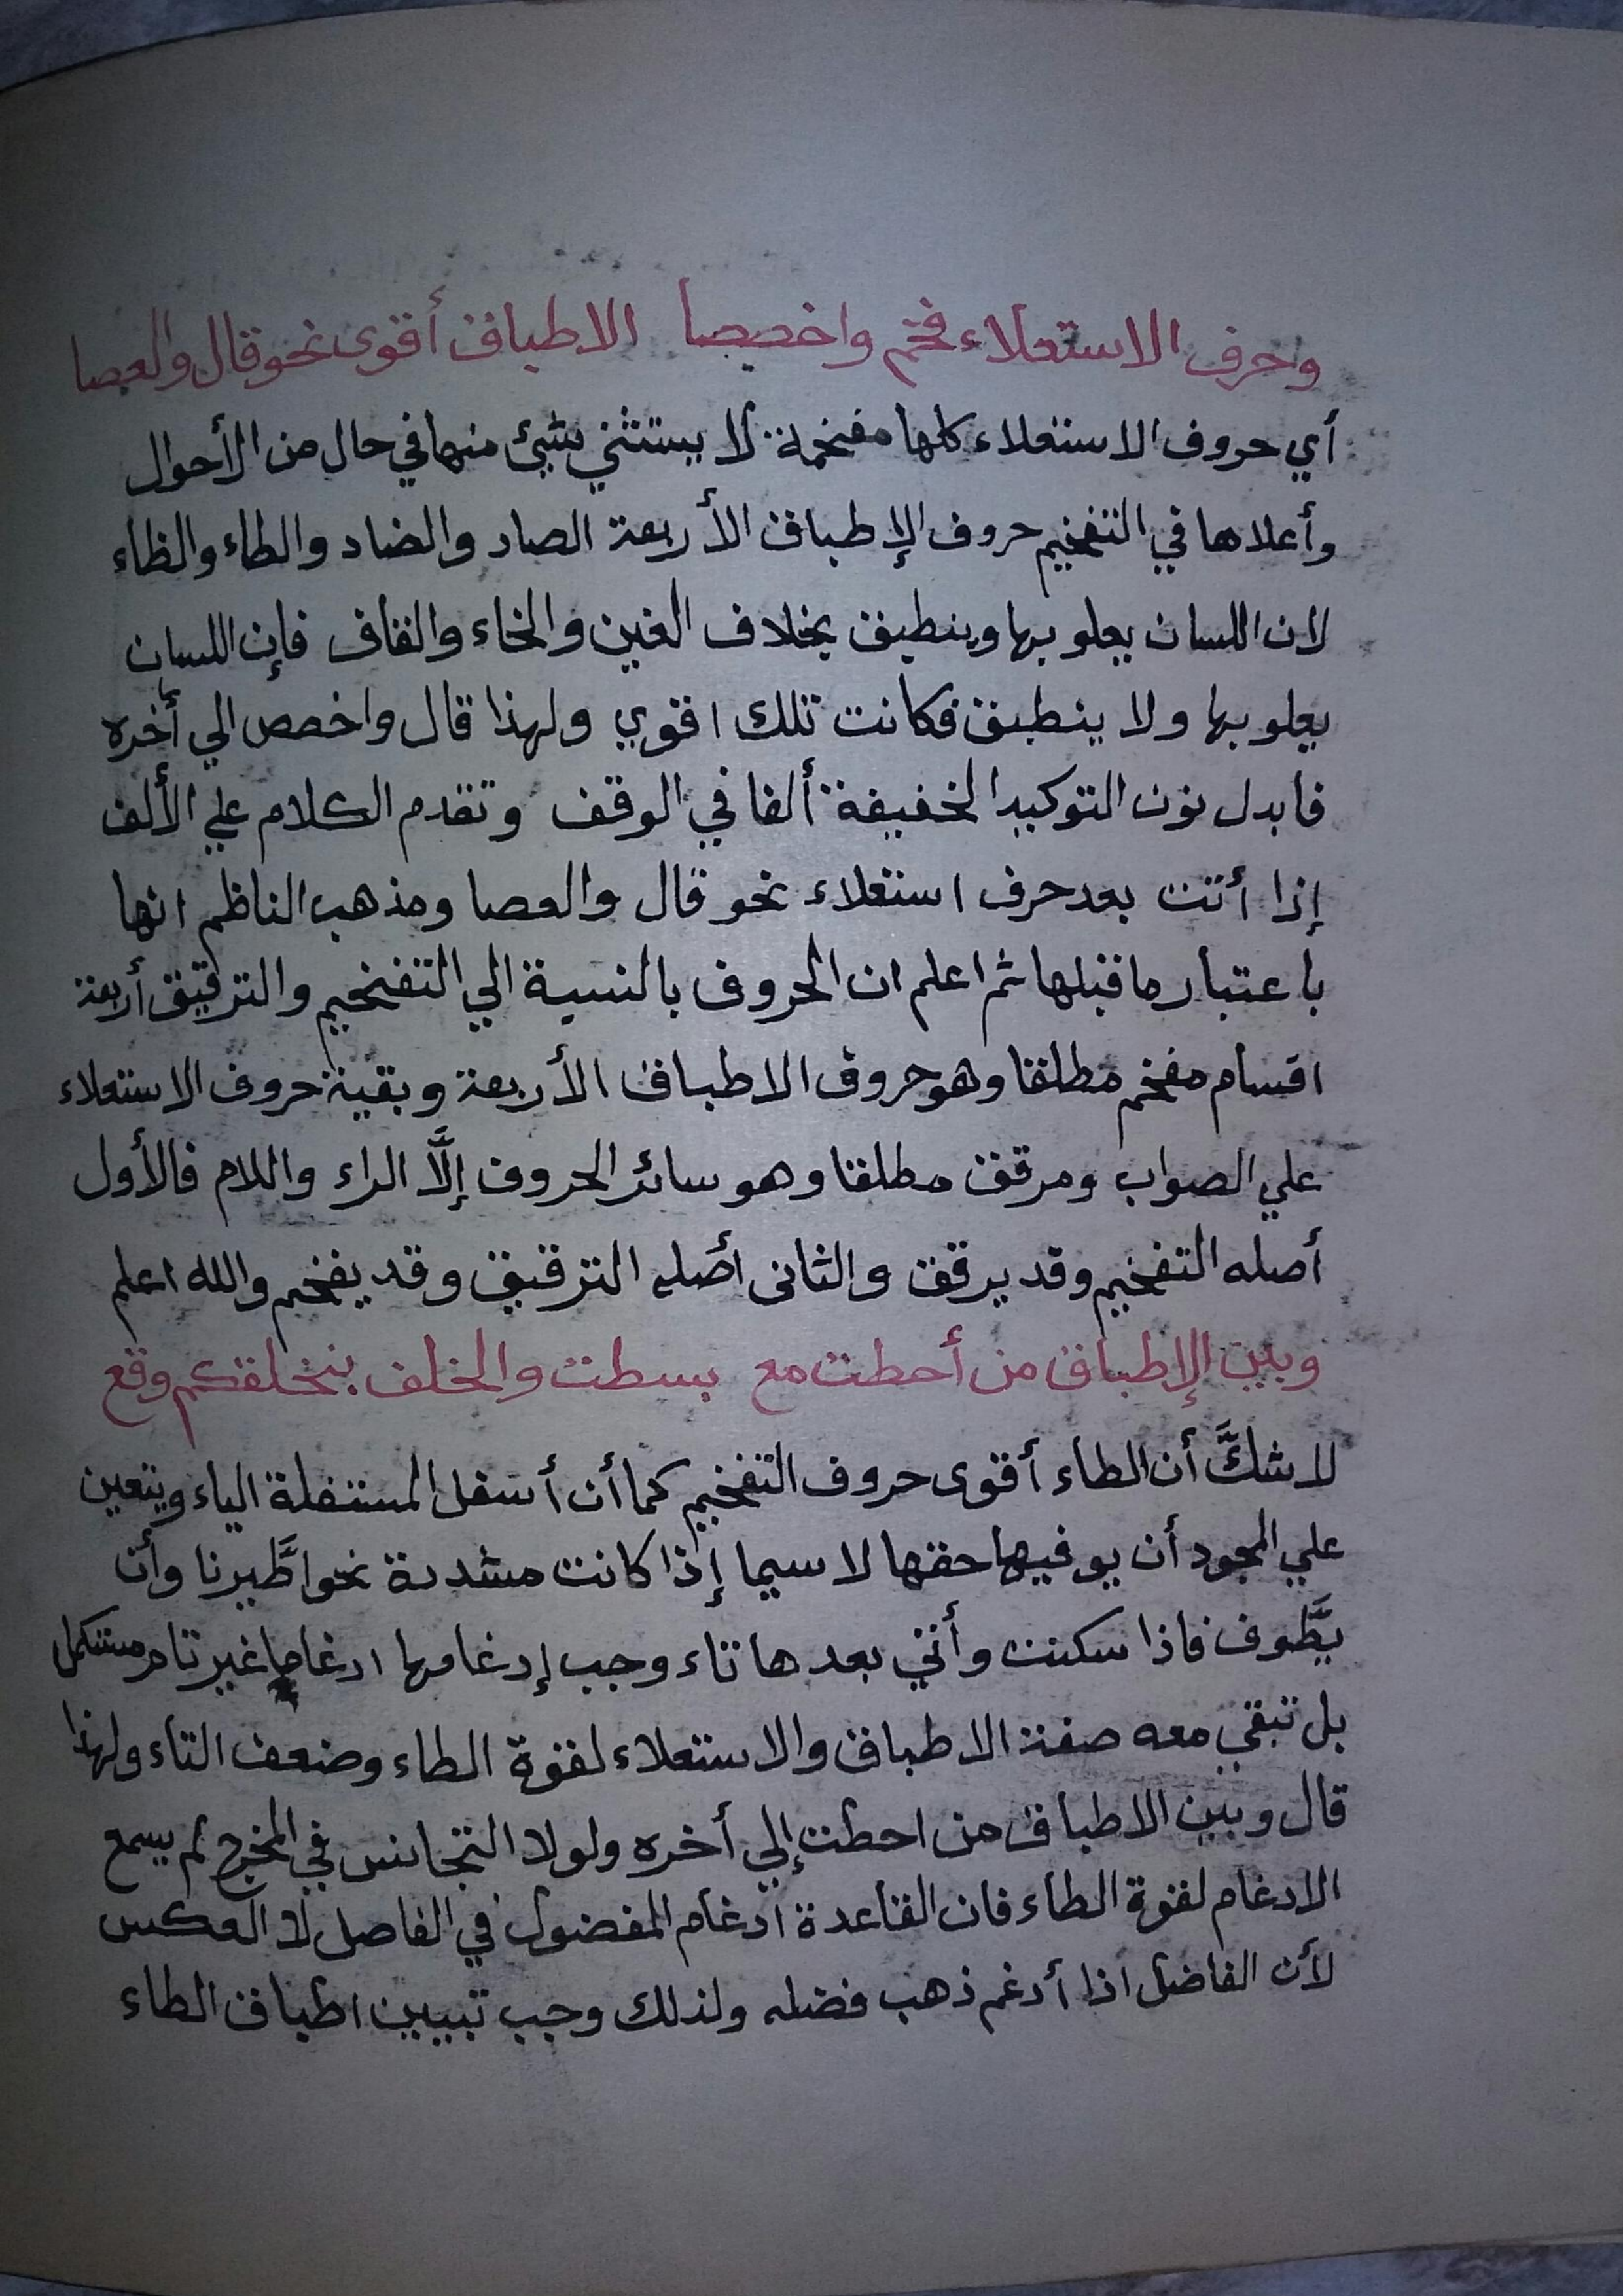 وحرف الاستعلاء فخم واخصصا الاطباق أقوى نحو قال والعصا
أي حروف الاستعلاء كلها مفخمة لا يستثني شيئ منها في حال من الأحوال
وأعلاها في التفخيم حروف الإطباق الأربعة الصاد والضاد والطاء والظاء
لان اللسان يعلو بها وينطبق بخلاف الغين والخاء والقاف فإن اللسان
يعلو بها ولا ينطبق فكانت تلك اقوي ولهذا قال واخصص الي أخره
فابدل نون التوكيد الخفيفة ألفا في الوقف وتقدم الكلام علي الألف
إذا أتت بعد حرف استعلاء نحو قال والعصا ومذهب الناظم انها
باعتبار ما قبلها ثم اعلم ان الحروف بالنسبة الي التفخيم والترقيق أربعة
اقسام مفخم مطلقا وهو حروف الاطباق الأربعة وبقية حروف الاستعلاء
علي الصواب ومرقق مطلقا وهو سائر الحروف إلَّا الراء واللام فالأول
أصله التفخيم وقد يرقق والثانى أصله الترقيق وقد يفخم والله اعلم
وبين الإطباق من أحطت مع بسطت والخلف بنخلقكم وقع
لا شكَّ أن الطاء أقوى حروف التفخيم كما أن أسفل المستفلة الياء ويتعين
علي المجود أن يوفيها حقها لا سيما إذا كانت مشددة نحو اطَّيرنا وأن
يطَّوف فاذا سكنت وأتي بعدها تاء وجب إدغامها ادغاما غير تام مستكمل
بل تبقي معه صفة الاطباق والاستعلاء لقوة الطاء وضعف التاء ولهذا
قال وبين الاطباق من احطت إلي أخره ولولا التجانس في المخرج لم يسمع
الادغام لقوة الطاء فان القاعدة ادغام المفضول في الفاصل لا العكس
لأن الفاضل اذا أدغم ذهب فضله ولذلك وجب تبيين اطباق الطاء